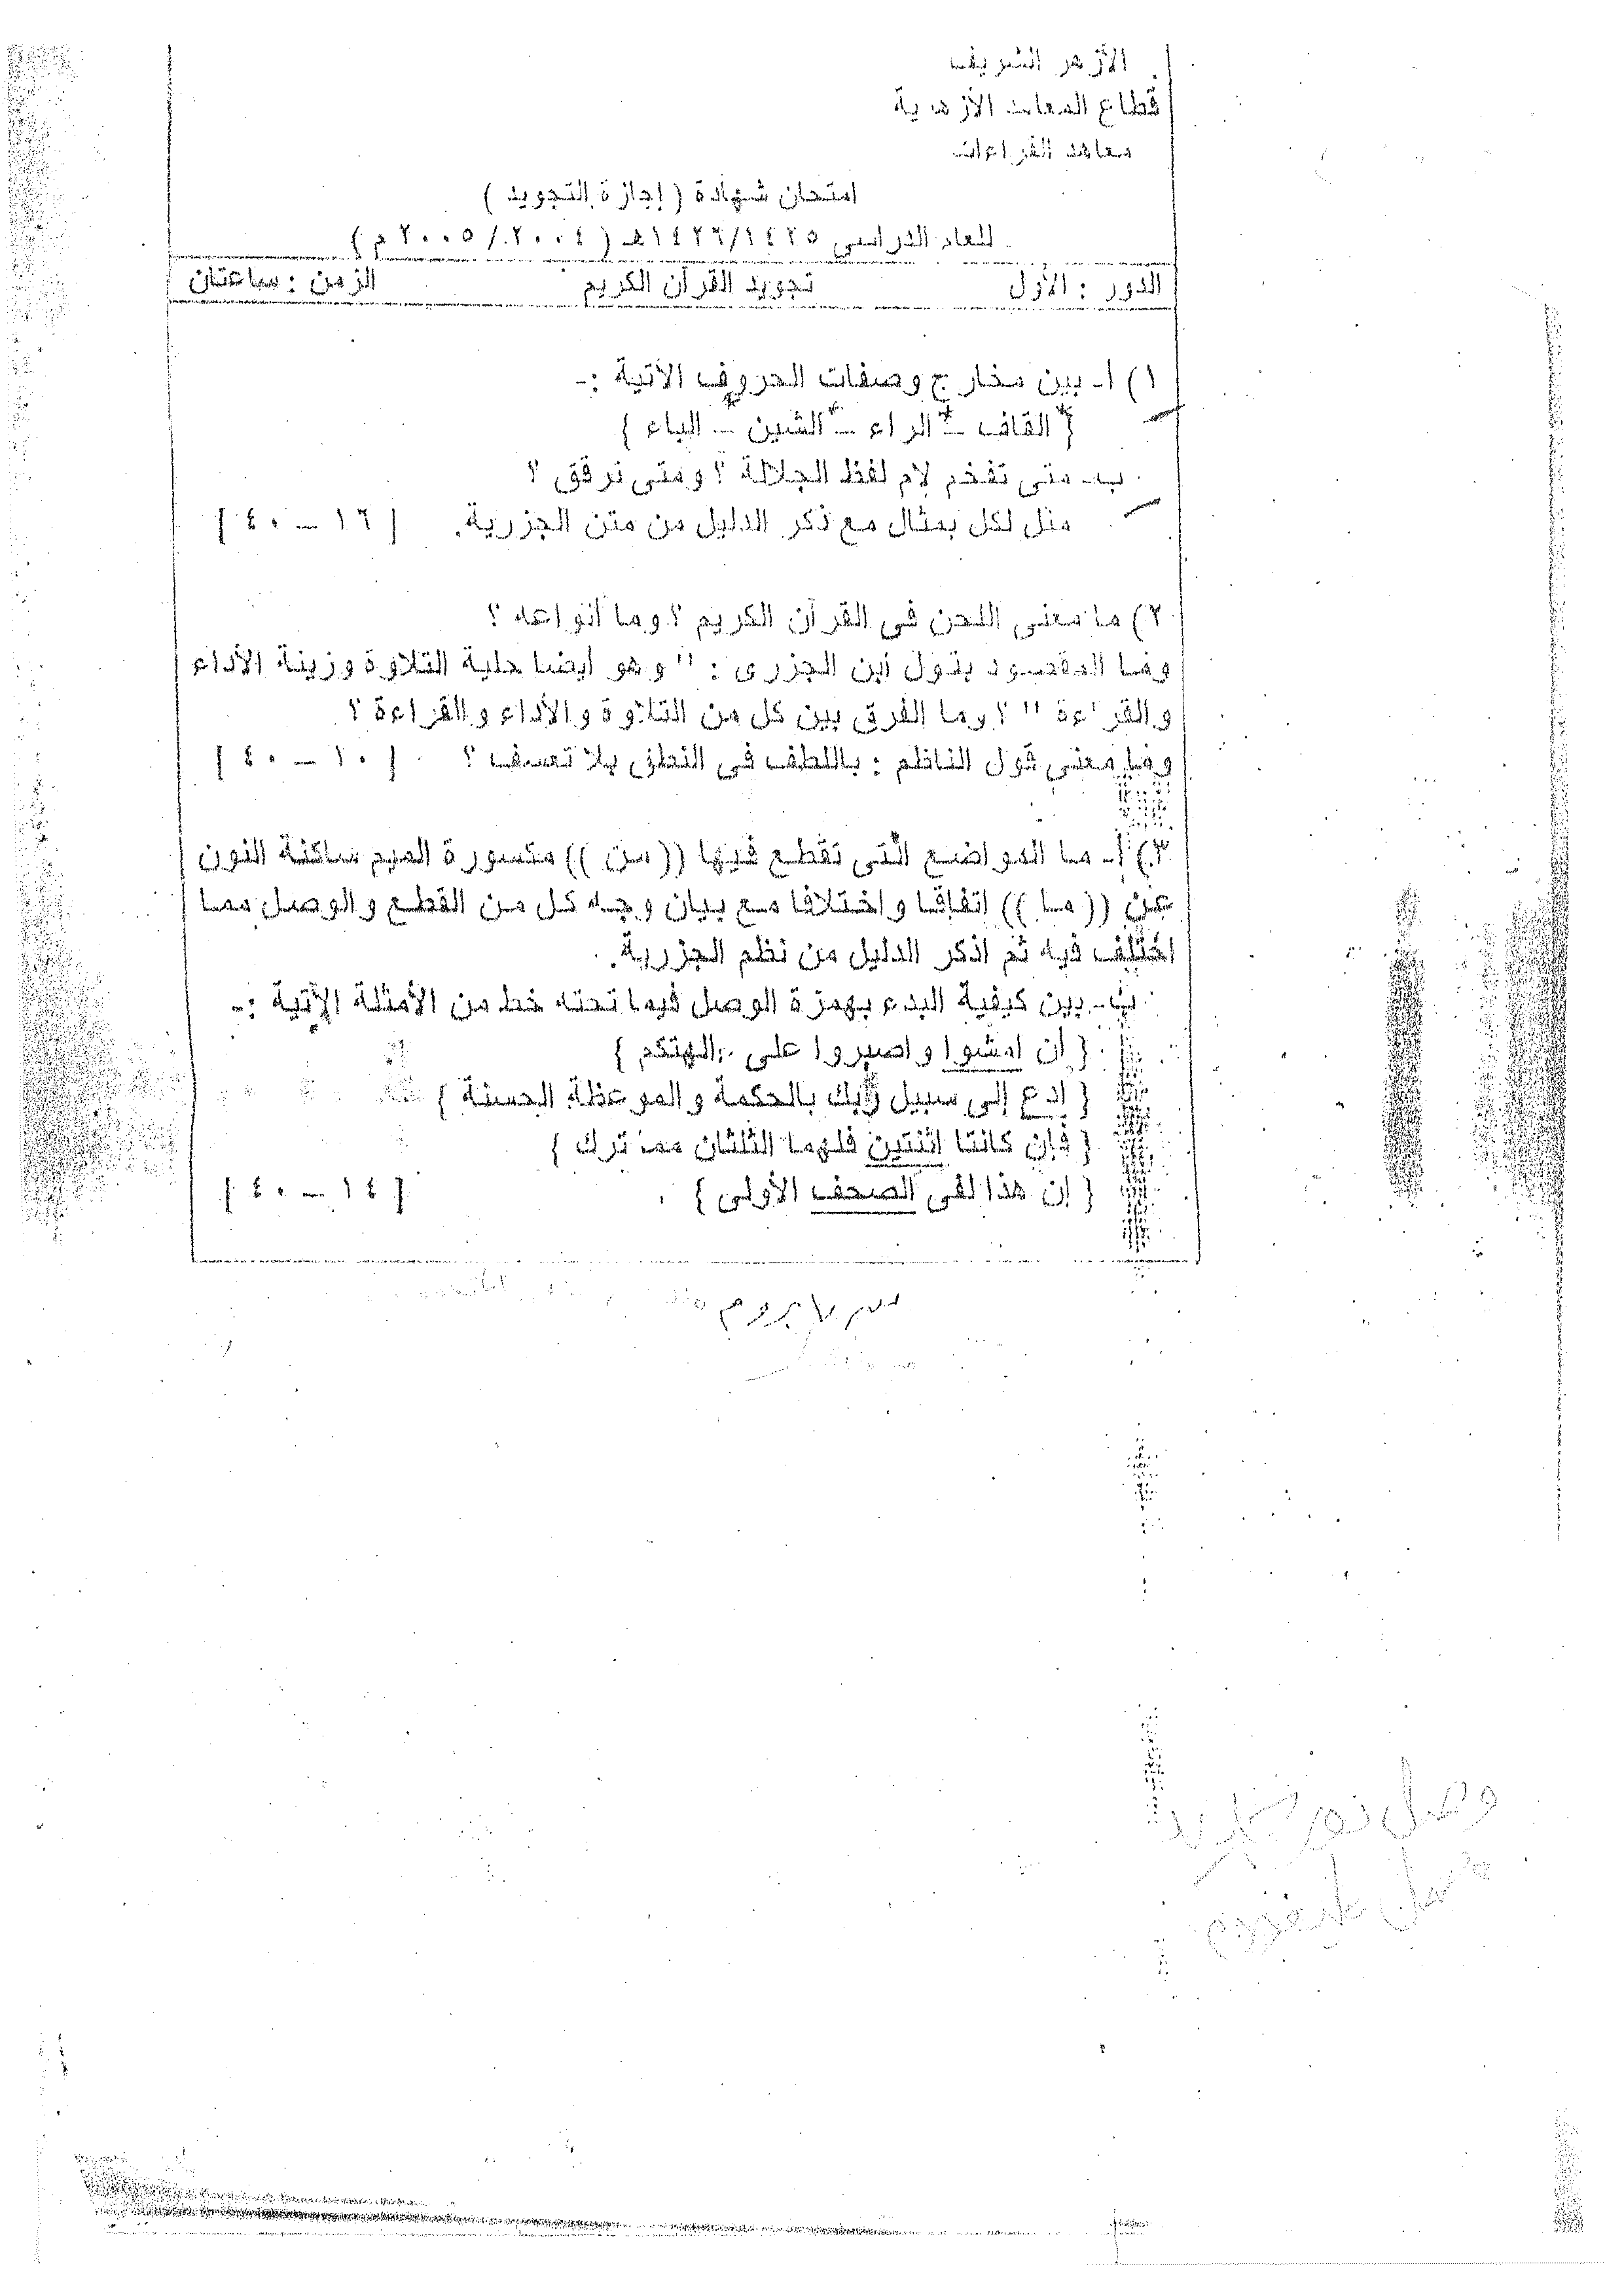 الأزهر الشريف
قطاع المعاهد الأزهرية
معاهد القراءات
امتحان شهادة ( إجازة التجويد )
للعام الدراسى ١٤٢٦/١٤٢٥هـ ( ٢٠٠٤ / ٢٠٠٥ م )
الدور : الأول تجويد القرآن الكريم الزمن : ساعتان
١) ا- بين مخارج وصفات الحروف الآتية :-
{ القاف – الراء – الشين – الباء }
ب- متى تفخم لام لفظ الجلالة ؟ ومتى ترقق ؟
مثل لكل بمثال مع ذكر الدليل من متن الجزرية. { ١٦ – ٤٠ }
٢) ما معنى اللحن فى القرآن الكريم ؟ وما أنواعه ؟
وما المقصود بقول ابن الجزرى : " وهو ايضا حلية التلاوة وزينة الأداء
والقراءة " ؟ وما الفرق بين كل من التلاوة والأداء والقراءة ؟
وما معنى قول الناظم : باللطف فى النطق بلا تعسف ؟ { ١٠ – ٤٠ }
٣) أ- ما المواضع التى تقطع فيها (( من )) مكسورة الميم ساكنة النون
عن (( ما )) اتفاقا واختلافا مع بيان وجه كل من القطع والوصل مما
اختلف فيه ثم اذكر الدليل من نظم الجزرية.
ب- بين كيفية البدء بهمزة الوصل فيما تحته خط من الأمثلة الآتية :-
{ ان امشوا واصبروا على آلهتكم }
{ ادع إلى سبيل ربك بالحكمة والموعظة الحسنة }
{ فإن كانتا اثنتين فلهما الثلثان مما ترك }
{ إن هذا لفى الصحف الأولى } { ١٤ – ٤٠ }